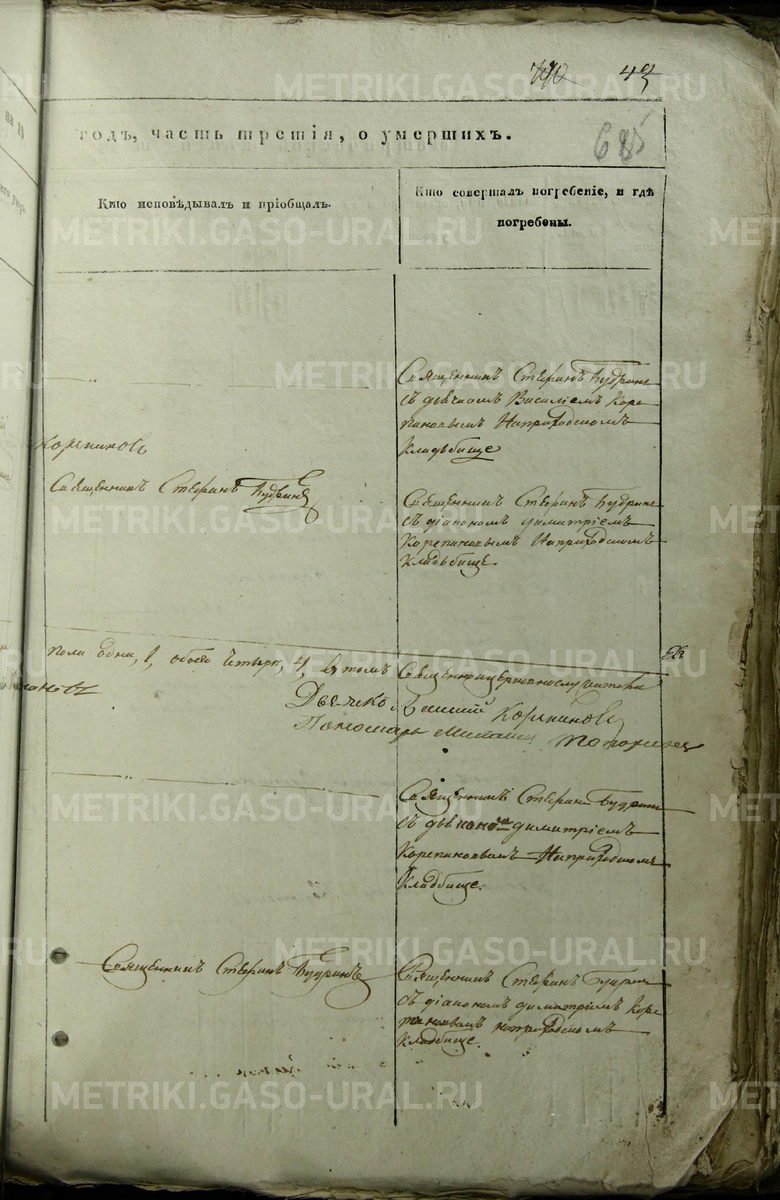 43
685
годъ, часть третія, о умершихъ.
на 18
Кто исповѣдывалъ и пріобщалъ.
Кто совершалъ погребеніе, и гдѣ
погребены.
Священникъ Стефанъ Будринъ
съ дьячкомъ Василіемъ Коре
пановымъ На приходскомъ
Кладьбище
Корепановъ
Священникъ Стефанъ Будринъ
Священникъ Стефанъ Будринъ
съ діакономъ димитріемъ
Корепановымъ На приходскомъ
Кладьбище
пола одна, 1, обоего четыре, 4, въ томъ Священноцерковнослужители
Дьячекъ Василий Корепановъ
Пономарь Михаилъ
Священникъ Стефанъ Будринъ
съ дьяконом димитріемъ
Корепановымъ На приходскомъ
Кладбище.
Священникъ Стефанъ Будринъ
Священникъ Стефанъ Будринъ
съ діакономъ димитріемъ Коре
пановымъ на приходскомъ
Кладбище.
METRIKI.GASO-URAL.RU